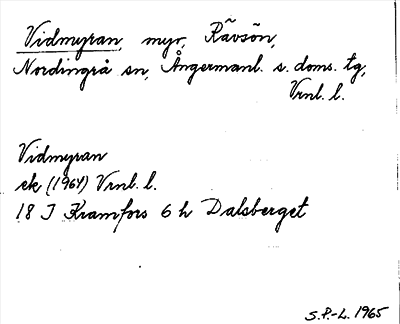 Vidmyran, myr, Rävsön,
Nordingrå sn, Ångermanl. s. doms. tg,
Vrnl. l.
Vidmyran
ek (1964) Vrnl. l.
18 J Kramfors 6 h Dalsberget
S.P.-L. 1965